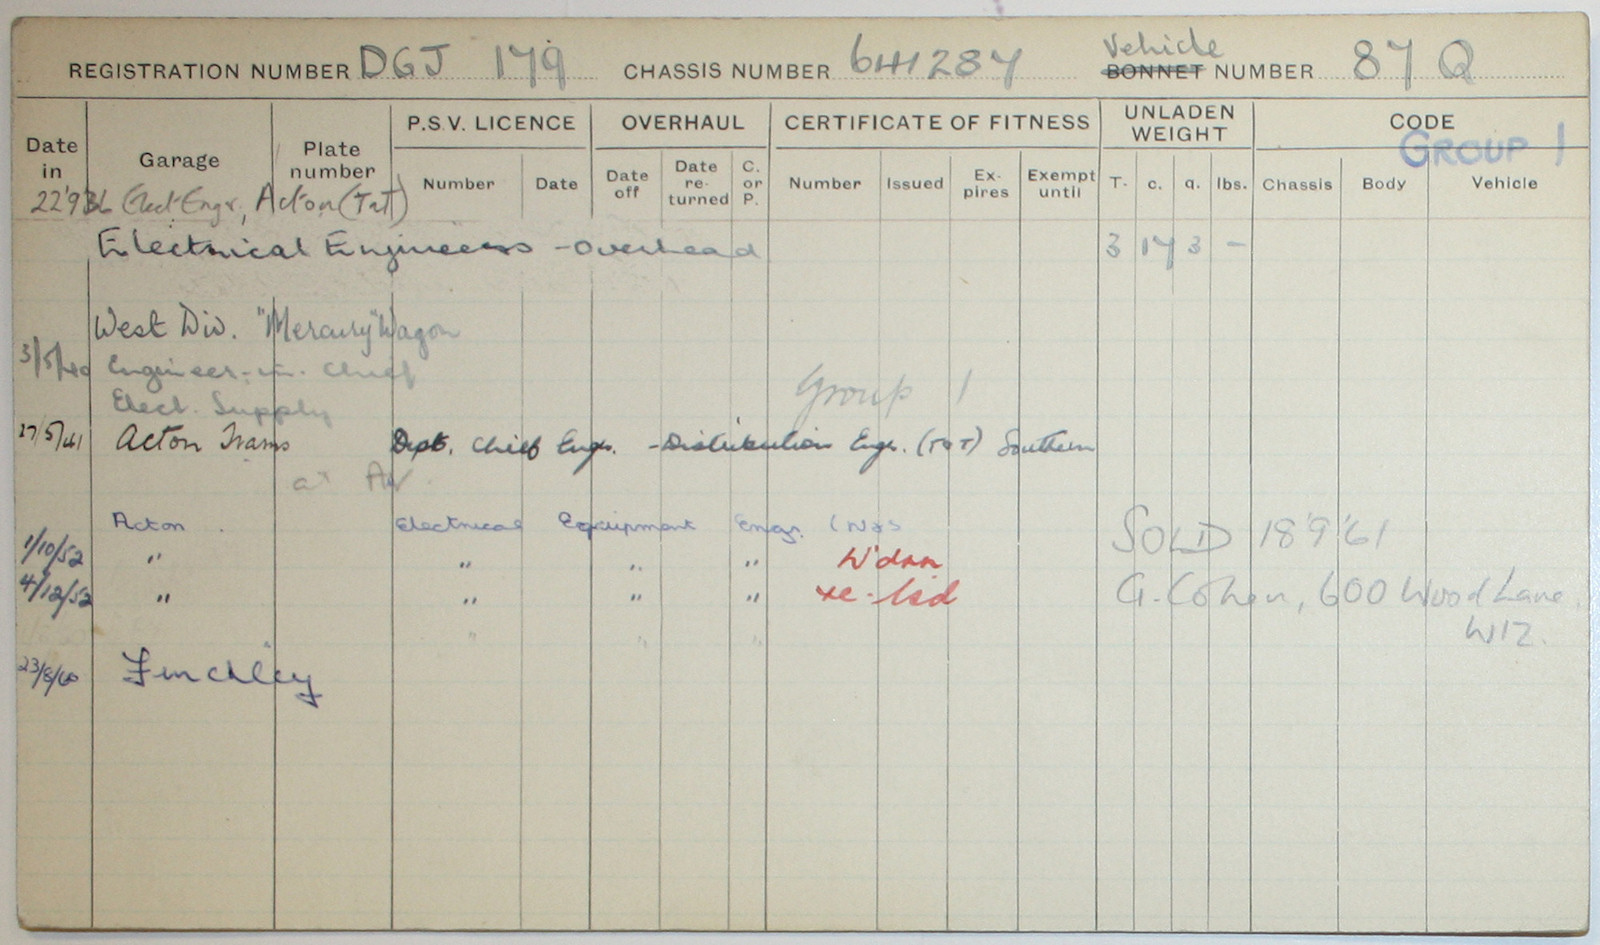 REGISTRATION NUMBER DGJ 179 CHASSIS NUMBER 6H1287 Vehicle BONNET NUMBER 87 Q
Date in Garage Plate number P.S.V. LICENCE OVERHAUL CERTIFICATE OF FITNESS UNLADEN WEIGHT CODE
GROUP 1
Number Date Date off Date re-turned C. or P. Number Issued Ex-pires Exempt until T. c. q. lbs. Chassis Body Vehicle
22'9'36 Elect. Engr, Acton (T&T)
Electrical Engineers - Overhead 3 17 3 -
West Div. "Mercury" Wagon
3/5/40 Engineer-in-chief
Elect. Supply Group 1
27/5/41 Acton Trams Dept. Chief Engr. - Distribution Engr. (T&T) Southern
at AW.
Acton. Electrical Equipment Engr.
SOLD 18'9'61
1/10/52 " " " " W'dnn
4/12/52 " " " " re-lsd
G. Cohen, 600 Wood Lane
W12.
" " "
23/8/60 Finchley